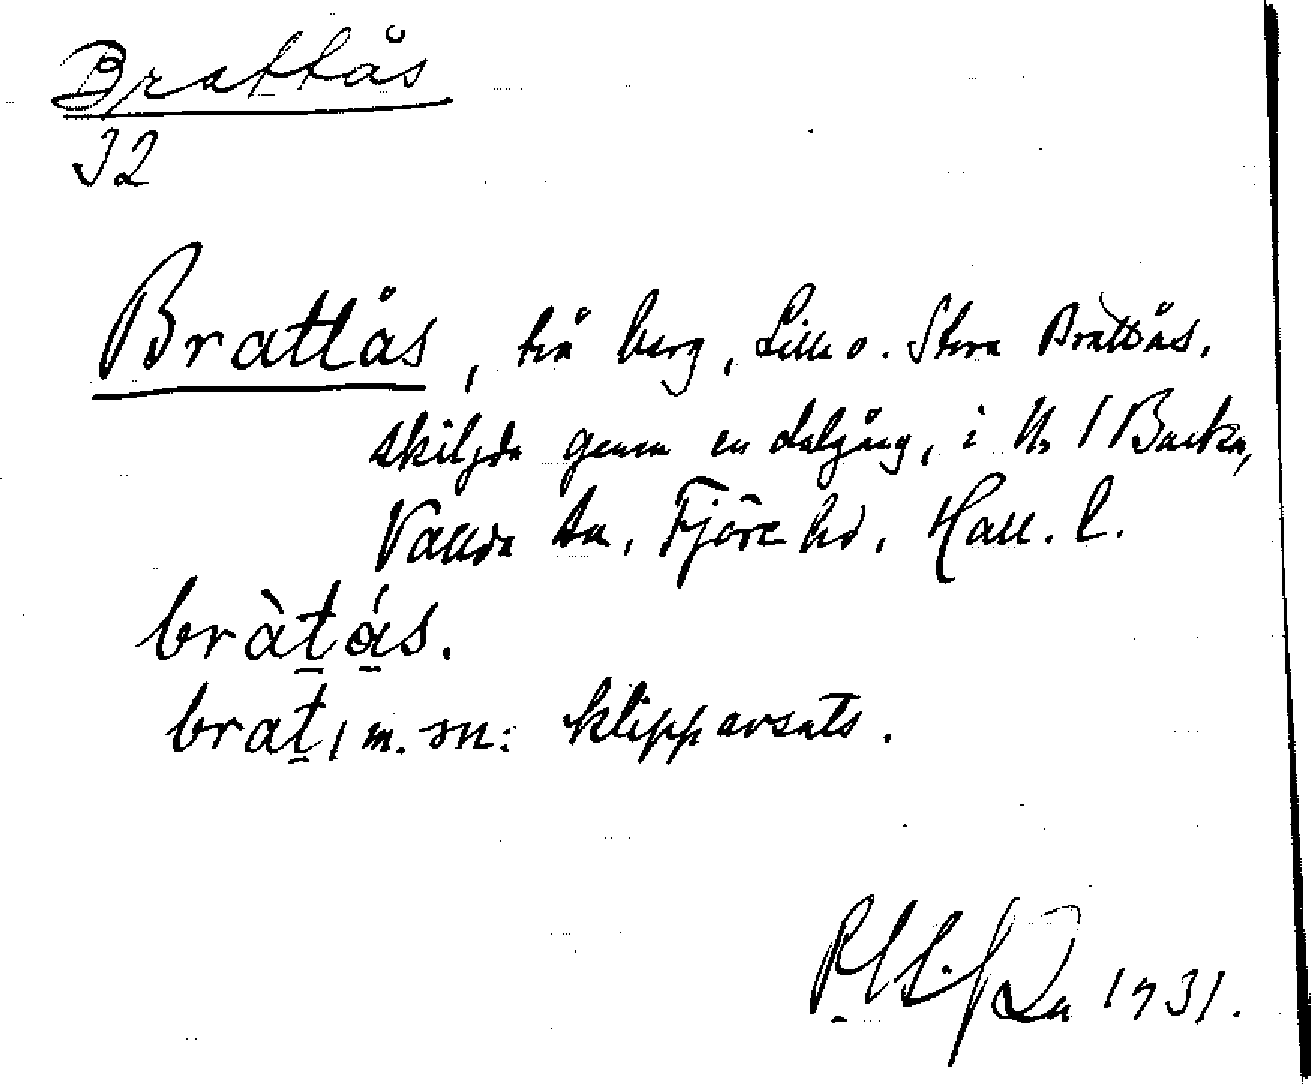 Brattås
32
Brattås, två berg, Lilla o. Stora Brattås,
skiljda genom en dalgång, i N. / Backa,
Vallda sn, Fjäre hd, Hall. l.
bràt̠á̠s.
brat̠, m. sn: klippavsats.
1931.